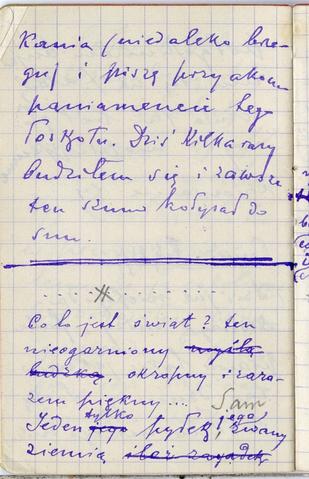 kania (niedaleko brze-
gu) i piszę przy akom-
paniamencie tego
łoskotu. Dziś kilka razy
budziłem się i zawsze
ten szum kołysał do
snu.
Co to jest świat? ten
nieogarniony myślą
ludzką, okropny i zara-
zem piękny....
Sam
tylko jego
Jeden jego pyłek, zwany
ziemią